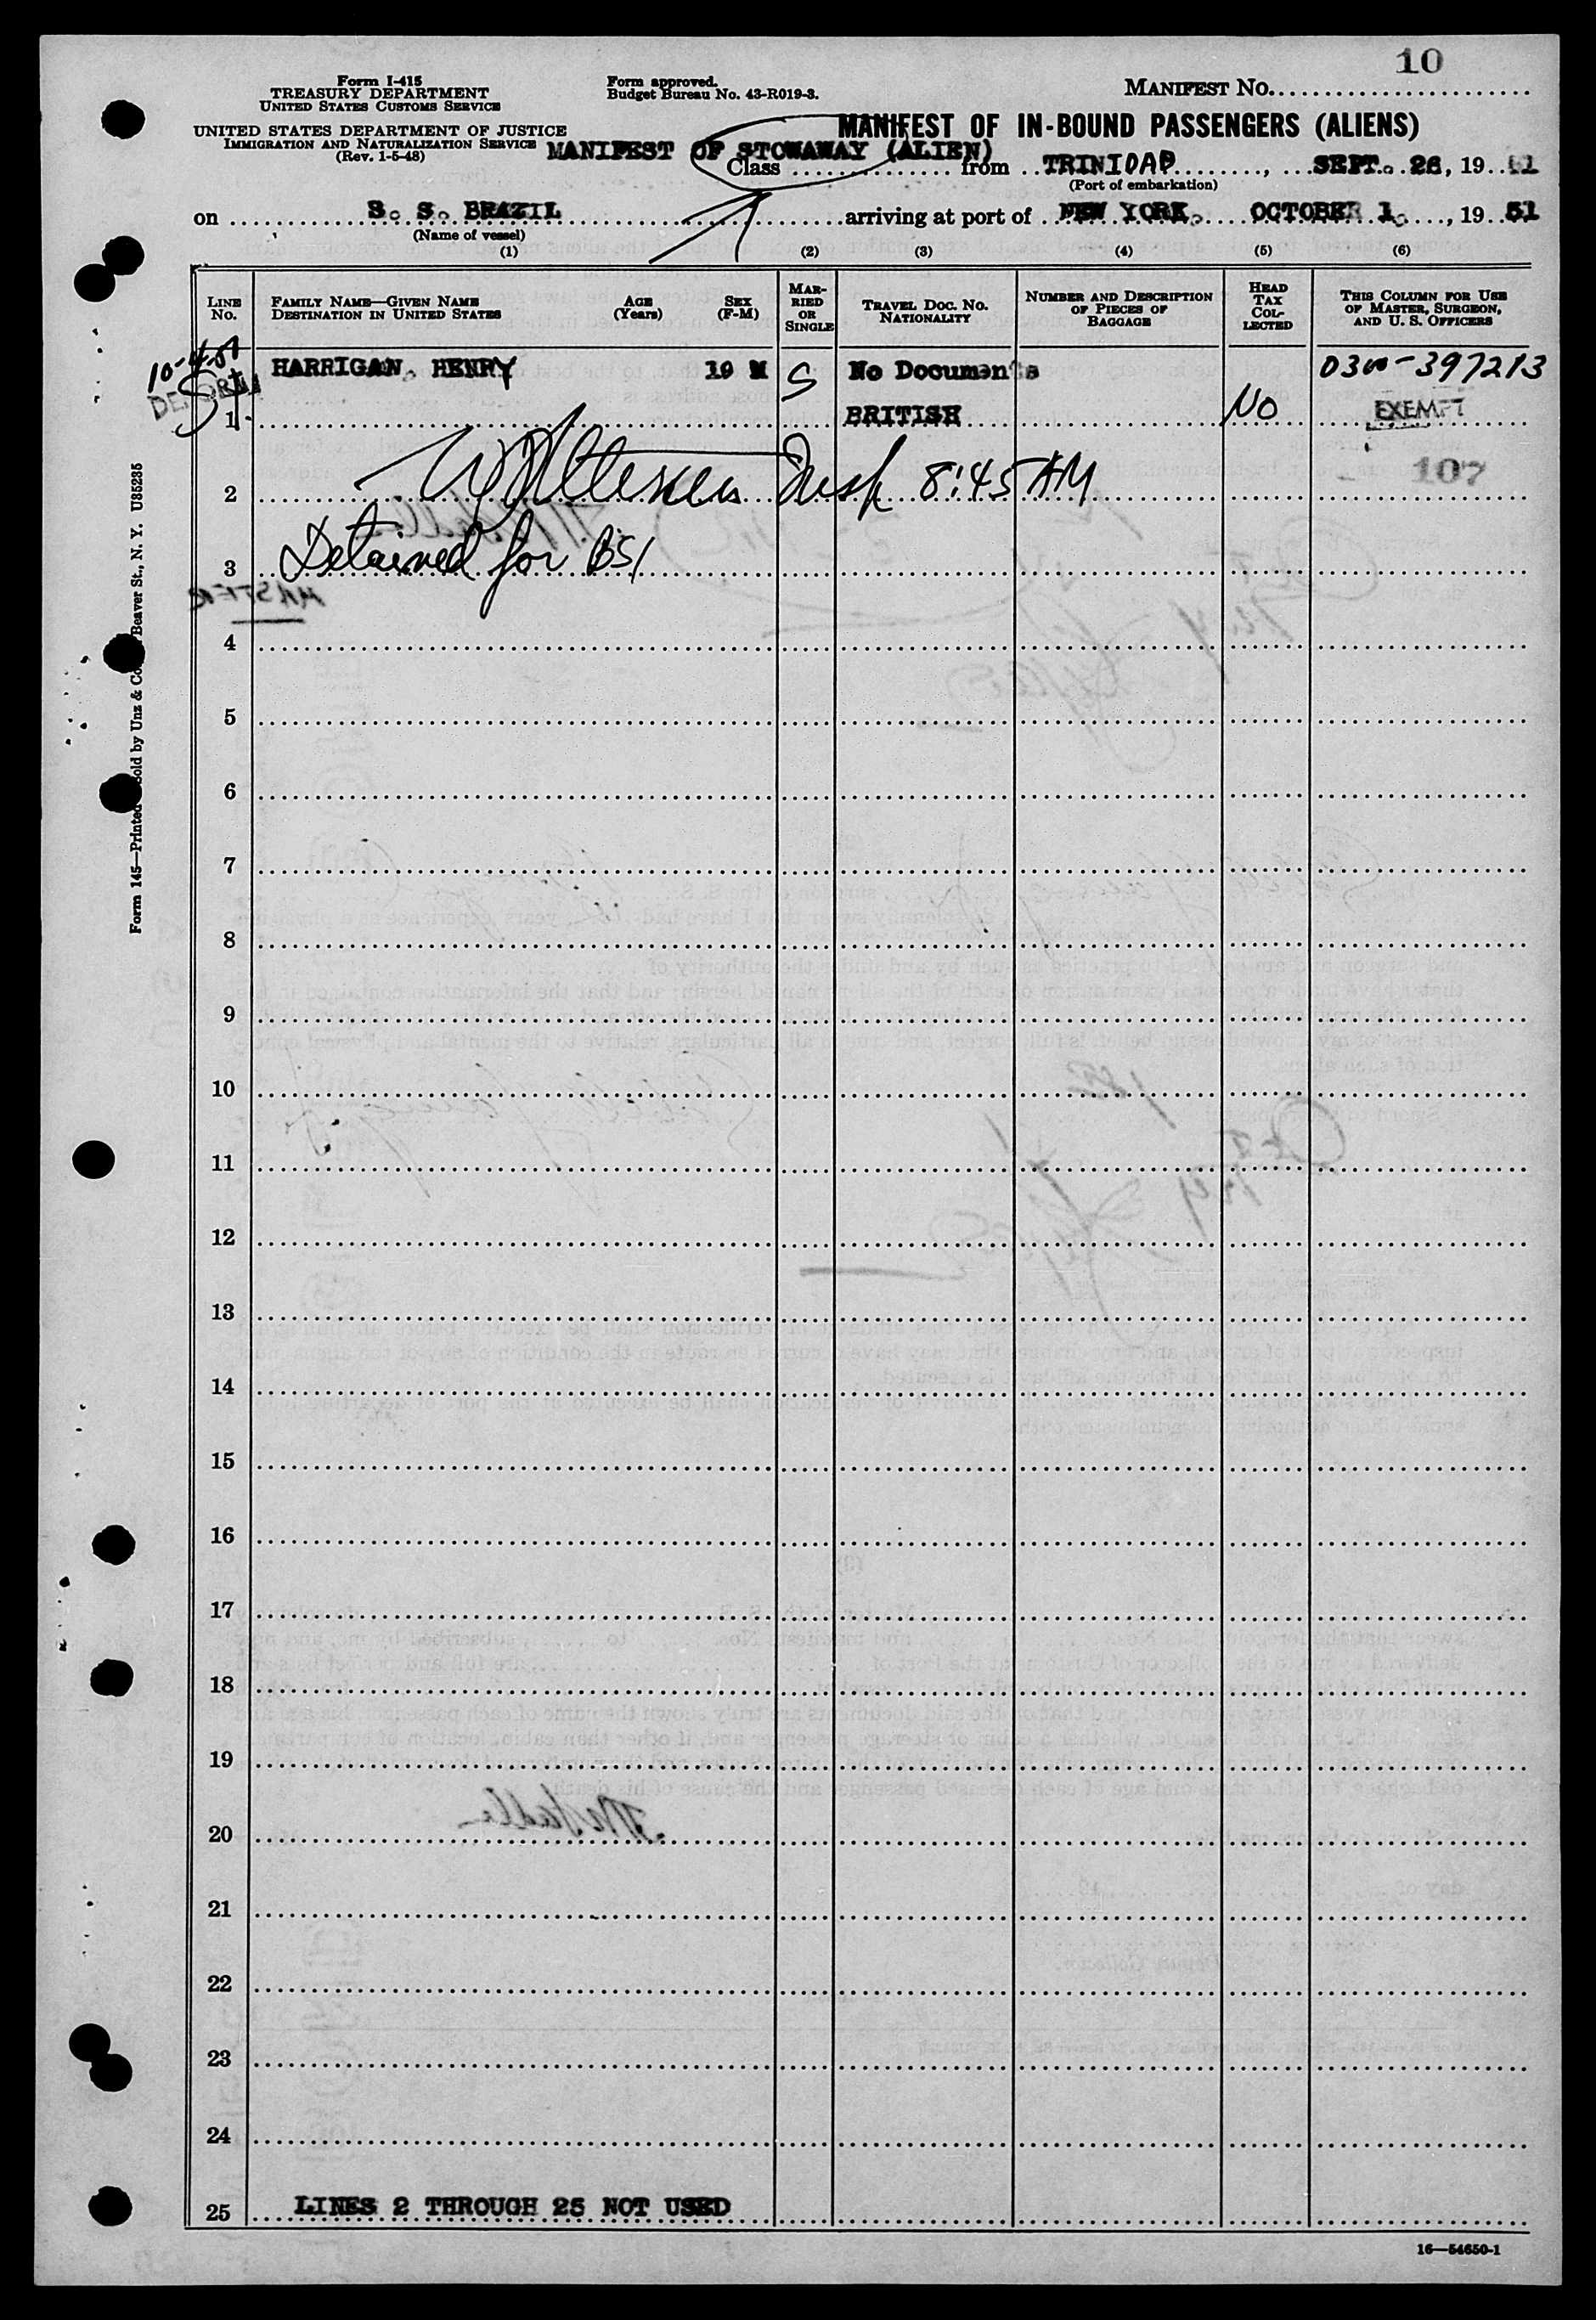 10
Form I-415
TREASURY DEPARTMENT
UNITED STATES CUSTOMS SERVICE
Form approved.
Budget Bureau No. 43-R019-3.
MANIFEST NO.
UNITED STATES DEPARTMENT OF JUSTICE
IMMIGRATION AND NATURALIZATION SERVICE
(Rev. 1-5-48)
MANIFEST OF IN-BOUND PASSENGERS (ALIENS)
MANIFEST OF STOWAWAY (ALIEN)
Class from TRINIDAD, SEPT. 26, 19
(Port of embarkation)
on S. S. BRAZIL arriving at port of NEW YORK, OCTOBER 1, 1951
(Name of vessel)
(1) (2) (3) (4) (5) (6)
LINE NO.
FAMILY NAME—GIVEN NAME
DESTINATION IN UNITED STATES
AGE (Years)
SEX (F-M)
MARRIED OR SINGLE
TRAVEL DOC. NO.
NATIONALITY
NUMBER AND DESCRIPTION OF PIECES OF BAGGAGE
HEAD TAX COLLECTED
THIS COLUMN FOR USE OF MASTER, SURGEON, AND U. S. OFFICERS
HARRIGAN, HENRY 19 M S No Documents 0300-397213
1 BRITISH No EXEMPT
107
2 Insp 8:45 AM
3 Detained for BSI
MASTER
4
5
6
7
8
9
10
11
12
13
14
15
16
17
18
19
20
21
22
23
24
25 LINES 2 THROUGH 25 NOT USED
16—54650-1
Beaver St., N. Y. U85235
Form 145—Printed
Sold by Unz &